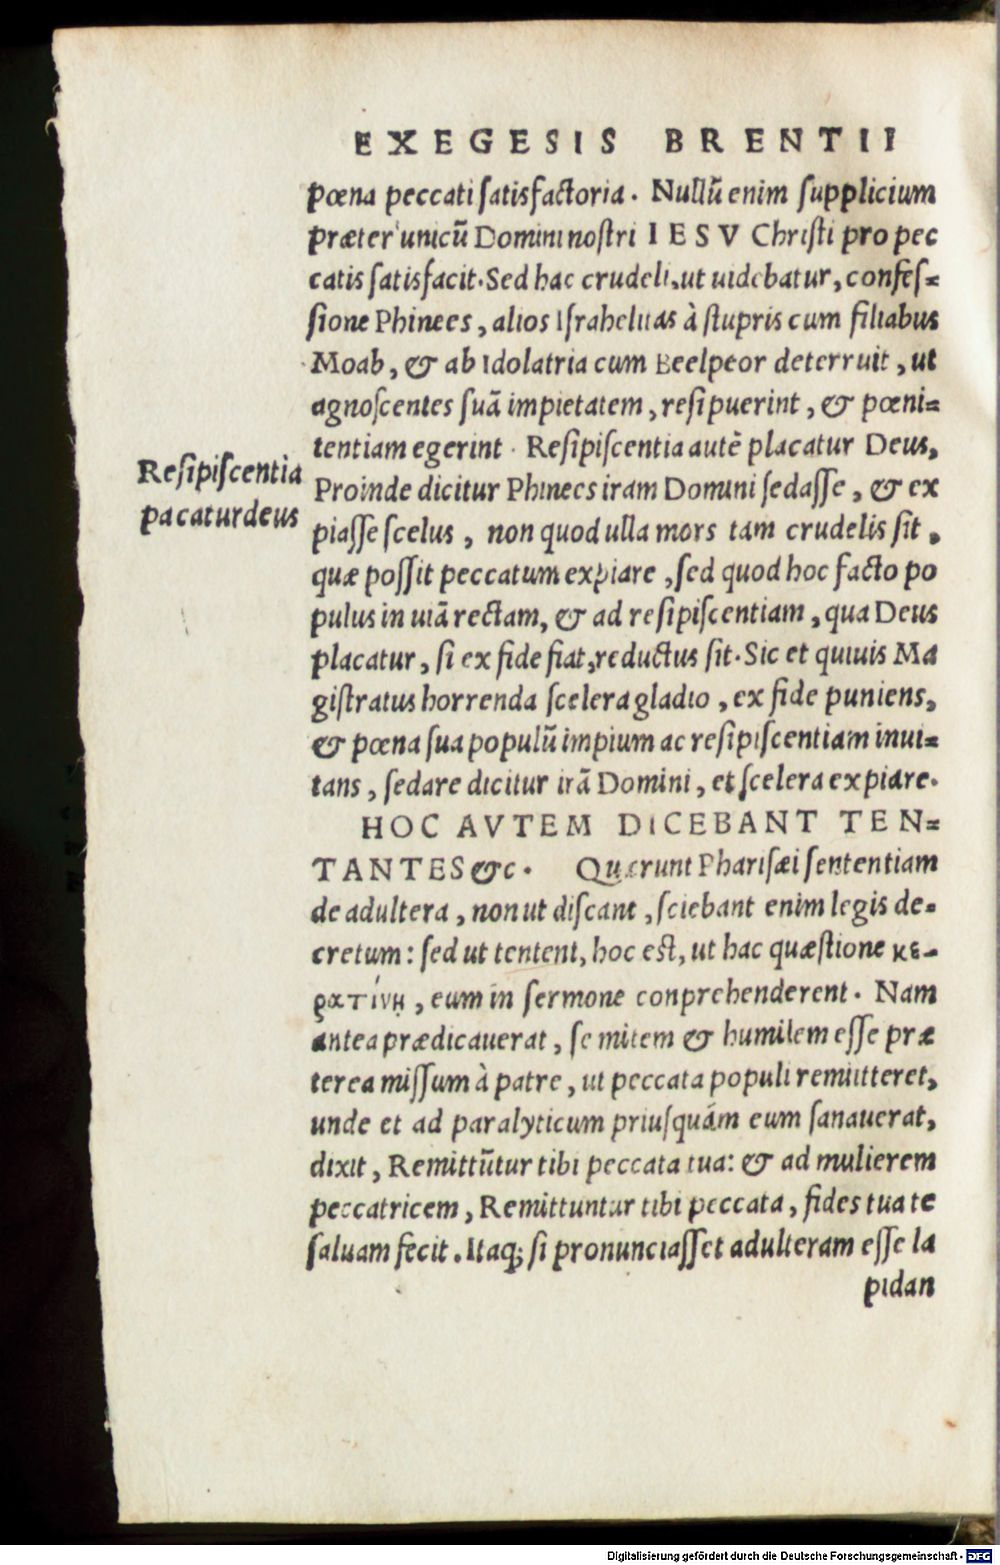 EXEGESIS BRENTII
pœna peccati ſatisfactoria. Nullũ enim ſupplicium
præter unicũ Domini noſtri IESV Chriſti pro pec
catis ſatisfacit. Sed hac crudeli, ut uidebatur, confeſ=
ſione Phinees, alios Iſrahelitas à ſtupris cum filiabus
Moab, & ab Idolatria cum Beelpeor deterruit, ut
agnoſcentes ſuã impietatem, reſipuerint, & pœni=
tentiam egerint. Reſipiſcentia autẽ placatur Deus,
Reſipiſcentia
pacatur deus
Proinde dicitur Phinees iram Domini ſedaſſe, & ex
piaſſe ſcelus, non quod ulla mors tam crudelis ſit,
quæ poſſit peccatum expiare, ſed quod hoc facto po
pulus in uiã rectam, & ad reſipiſcentiam, qua Deus
placatur, ſi ex fide fiat, reductus ſit. Sic et quiuis Ma
giſtratus horrenda ſcelera gladio, ex fide puniens,
& pœna ſua populũ impium ac reſipiſcentiam inui=
tans, ſedare dicitur irã Domini, et ſcelera expiare.
HOC AVTEM DICEBANT TEN=
TANTES &c. Quærunt Phariſæi ſententiam
de adultera, non ut diſcant, ſciebant enim legis de=
cretum: ſed ut tentent, hoc eſt, ut hac quæſtione κε-
ρατίνῃ, eum in ſermone conprehenderent. Nam
antea prædicauerat, ſe mitem & humilem eſſe præ
terea miſſum à patre, ut peccata populi remitteret,
unde et ad paralyticum priuſquám eum ſanauerat,
dixit, Remittũtur tibi peccata tua: & ad mulierem
peccatricem, Remittuntur tibi peccata, fides tua te
ſaluam fecit. Itaq; ſi pronunciaſſet adulteram eſſe la
pidan
Digitalisierung gefördert durch die Deutsche Forschungsgemeinschaft - DFG